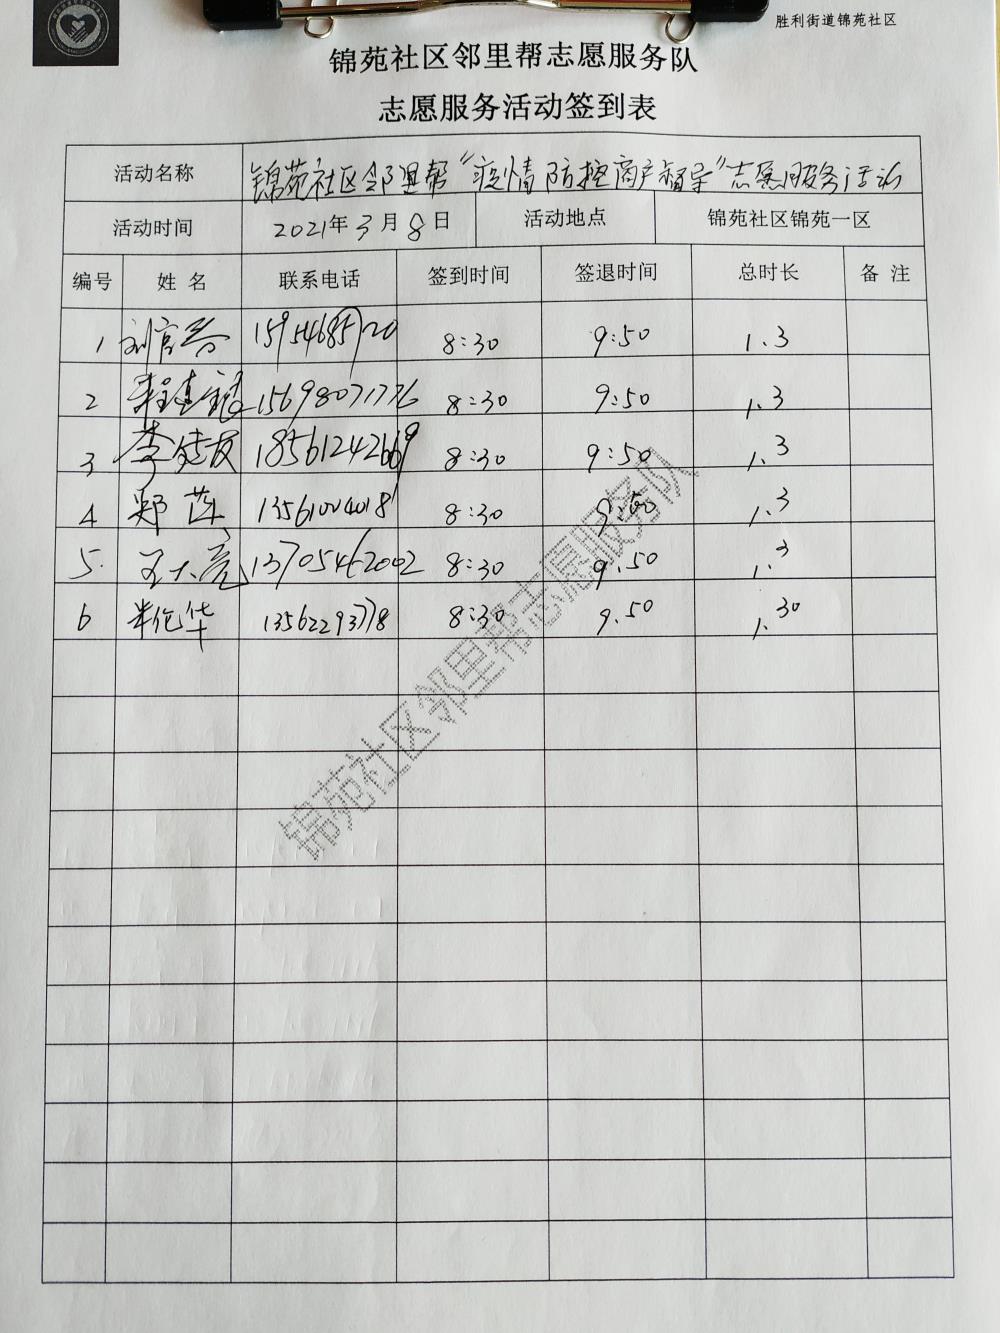 胜利街道锦苑社区
锦苑社区邻里帮志愿服务队
志愿服务活动签到表
活动名称 锦苑社区邻里帮“疫情防控商户督导”志愿服务活动
活动时间 2021年3月8日 活动地点 锦苑社区锦苑一区
编号 姓名 联系电话 签到时间 签退时间 总时长 备注
1 8:30 9:50 1.3
2 15698071776 8:30 9:50 1.3
3 李 18561242669 8:30 9:50 1.3
4 郑 13561004018 8:30 9:50 1.3
5. 王大亮 13705462002 8:30 9.50 1.3
6 华 13562293778 8:30 9.50 1.30
锦苑社区邻里帮志愿服务队